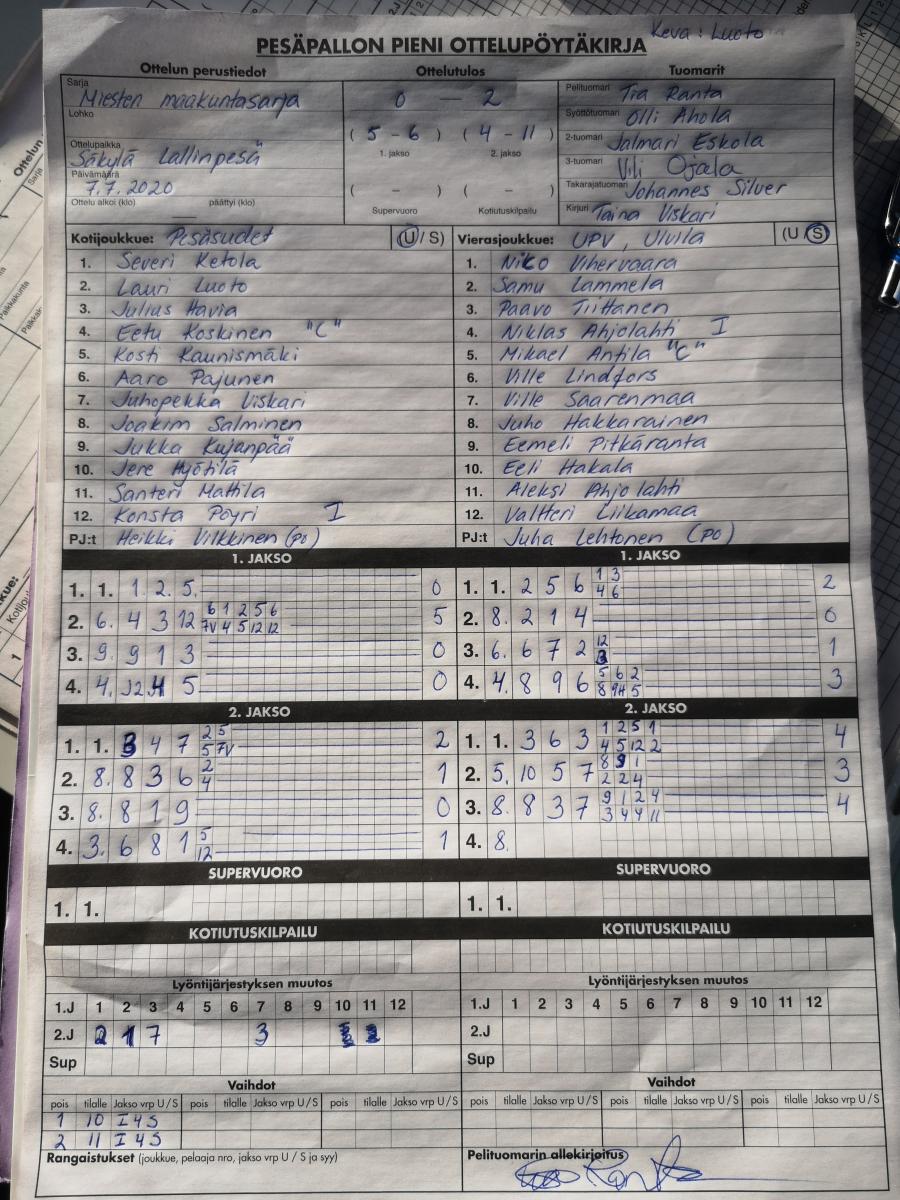 Keva : Luoto
PESÄPALLON PIENI OTTELUPÖYTÄKIRJA
Ottelun perustiedot Ottelutulos Tuomarit
Sarja Miesten maakuntasarja
Lohko
Ottelupaikka Säkylä Lallinpesä
Päivämäärä 7.7.2020
Ottelu alkoi (klo) päättyi (klo)
0 — 2
( 5 - 6 ) ( 4 - 11 )
1. jakso 2. jakso
( - ) ( - )
Supervuoro Kotiutuskilpailu
Pelituomari Tia Ranta
Syöttötuomari Olli Ahola
2-tuomari Jalmari Eskola
3-tuomari Vili Ojala
Takarajatuomari Johannes Silver
Kirjuri Taina Viskari
Kotijoukkue: Pesäsudet (U / S) Vierasjoukkue: UPV, Ulvila (U S)
1. Severi Ketola 1. Niko Vihervaara
2. Lauri Luoto 2. Samu Lammela
3. Julius Havia 3. Paavo Tiittanen
4. Eetu Koskinen "C" 4. Niklas Ahjolahti I
5. Kosti Kaunismäki 5. Mikael Antila "C"
6. Aaro Pajunen 6. Ville Lindfors
7. Juhopekka Viskari 7. Ville Saarenmaa
8. Joakim Salminen 8. Juho Hakkarainen
9. Jukka Kujanpää 9. Eemeli Pitkäranta
10. Jere Hyötilä 10. Eeli Hakala
11. Santeri Mattila 11. Aleksi Ahjolahti
12. Konsta Pöyri I 12. Valtteri Liikamaa
PJ:t Heikki Vilkkinen (po) PJ:t Juha Lehtonen (po)
1. JAKSO 1. JAKSO
1. 1. 1. 2. 5. 0 1. 1. 2 5 6 1 3 2
4 6
2. 6. 4 3 12 6 1 2 5 6 5 2. 8. 2 1 4 0
7V 4 5 12 12
3. 9. 9 1 3 0 3. 6. 6 7 2 12 1
3
4. 4. 12 4 5 0 4. 4. 8 9 6 5 6 2 3
8 9H 5
2. JAKSO 2. JAKSO
1. 1. 3 4 7 2 5 2 1. 1. 3 6 3 1 2 5 1 4
5 7V 4 5 12 2
2. 8. 8 3 6 2 1 2. 5. 10 5 7 8 9 1 3
4 2 2 4
3. 8. 8 1 9 0 3. 8. 8 3 7 9 1 2 4 4
3 4 4 11
4. 3. 6 8 1 5 1 4. 8.
12
SUPERVUORO SUPERVUORO
1. 1. 1. 1.
KOTIUTUSKILPAILU KOTIUTUSKILPAILU
Lyöntijärjestyksen muutos Lyöntijärjestyksen muutos
1.J 1 2 3 4 5 6 7 8 9 10 11 12 1.J 1 2 3 4 5 6 7 8 9 10 11 12
2.J 2 1 7 3 2.J
Sup Sup
Vaihdot Vaihdot
pois tilalle Jakso vrp U / S pois tilalle Jakso vrp U / S pois tilalle Jakso vrp U / S pois tilalle Jakso vrp U / S pois tilalle Jakso vrp U / S pois tilalle Jakso vrp U / S
1 10 I 4 S
2 11 I 4 S
Rangaistukset (joukkue, pelaaja nro, jakso vrp U / S ja syy) Pelituomarin allekirjoitus